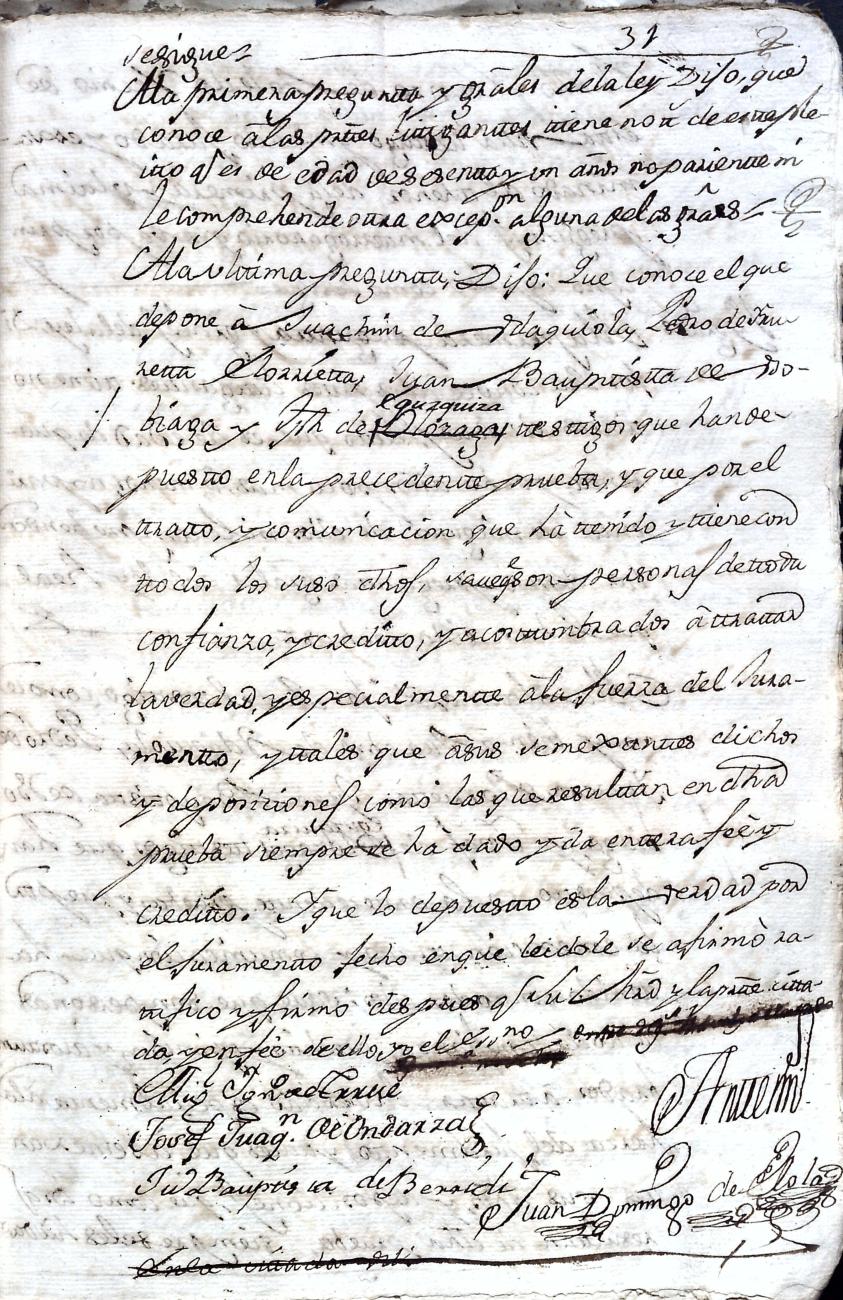 31
se sigue=
Ala primera pregunta y grãles dela ley Dijo, que
conoce â las prtes litigantes, tiene notª de este ple-
itto q̃ es de edad de sesenta y un años no pariente ni
le comprehende otra excepon alguna de las grãles=
Ala ultima pregunta, Dijo: Que conoce el que
depone â Juachin de Ydaquiola, Pedro de Yru
retta Elorrietta, Juan Bauptista de Do-
biaga y Jph de Eguzquiza Olozaga, testigos que han de-
puesto en la precedente prueba, y que por el
tratto, y comunicacion que hà tenido y tiene con
ttodos los suso dhos, save q̃ son personas de ttoda
confianza, y creditto, y acostumbrados â trattar
la verdad, y especialmente â la fuerza del Jura-
mentto, y tales que â sus semexantes dichos
y deposiciones como las que resultan en dha
prueba siempre se hà dado y da entera fee y
creditto. Y que lo depuesto es la verdad por
el Juramentto fecho en que leidole se afirmò ra-
tifico y firmo despues q̃ Su Md y la parte citta-
da y en fee de ello, yo el Essno
Antemi
Josef Juaqn. de Ondarza
Ju Bauptista de Berridi
Juan Domingo de Elola